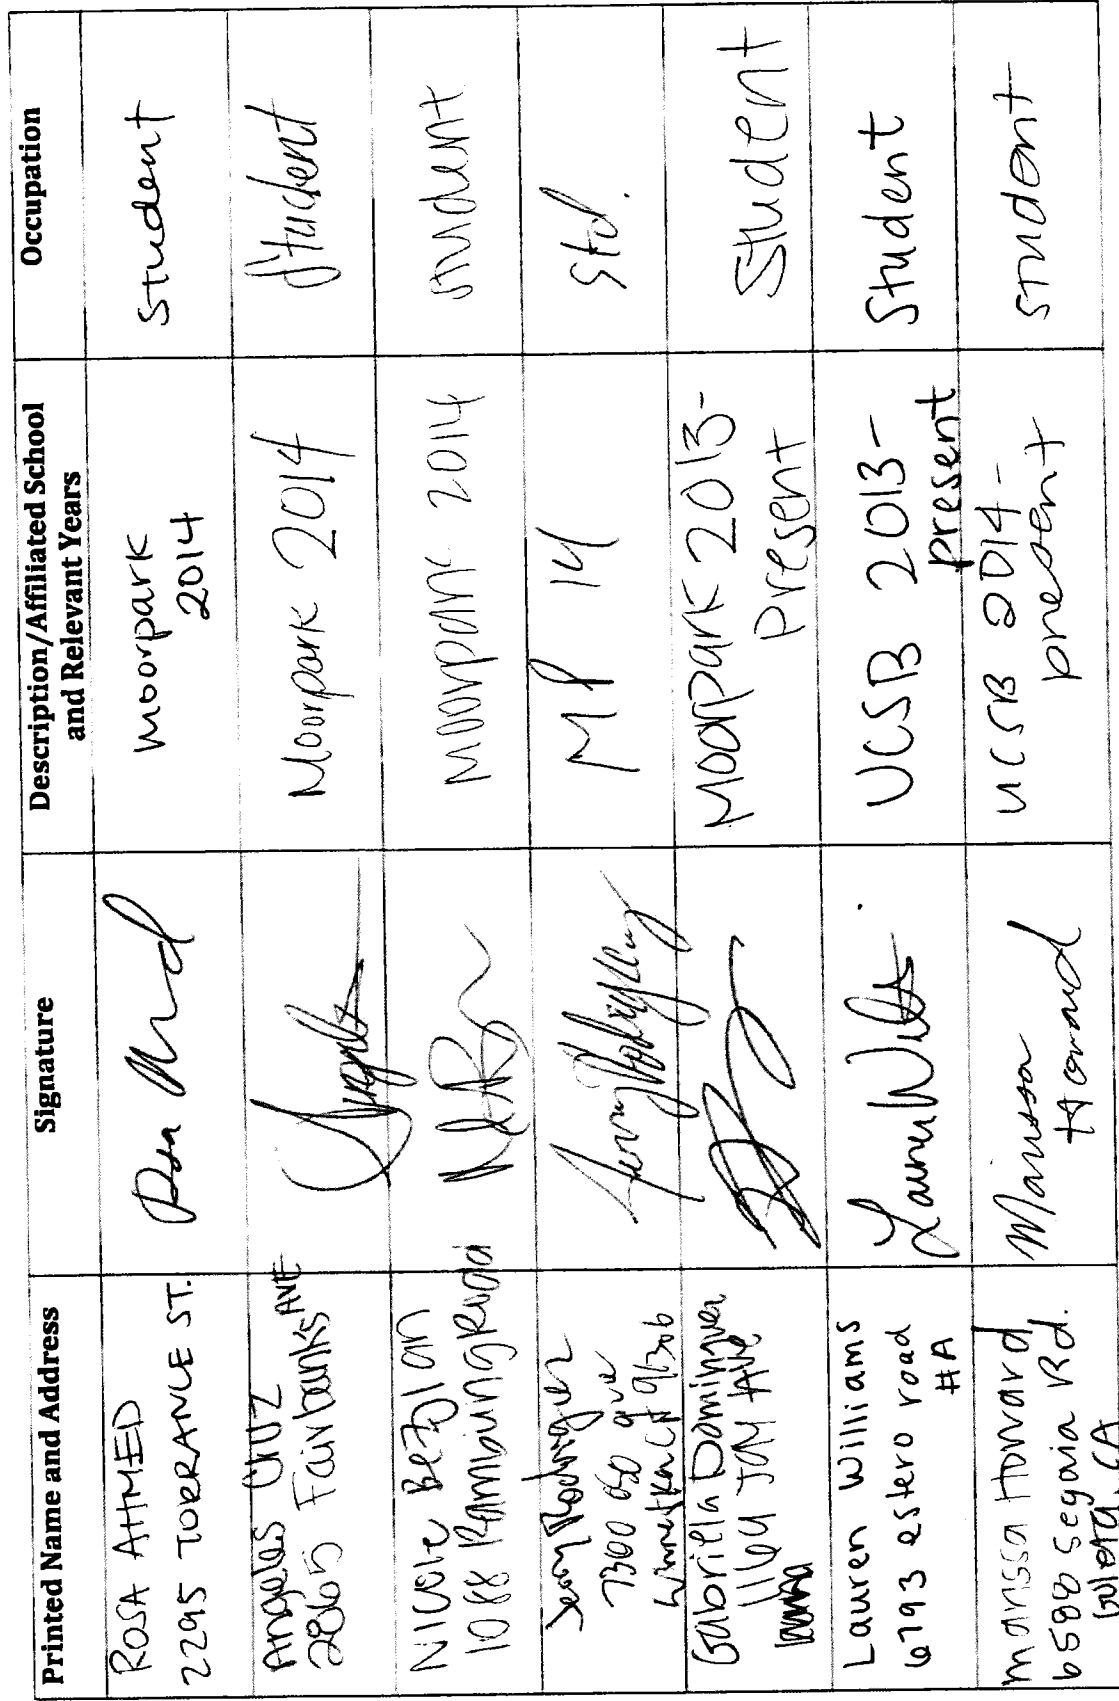 Printed Name and Address
Signature
Description/Affiliated School
and Relevant Years
Occupation
ROSA AHMED
2295 TORRANCE ST.
Moorpark
2014
Student
Angeles Cruz
2865 Fairbanks AVE
Moorpark 2014
Student
Nicole Bezjian
1088 Rambling Road
Moorpark 2014
student
Jenny Rodriguez
7300 ave
Winnetka CA 91306
MP 14
Std.
Gabriella Dominguez
1164 JAY AVE
Moorpark 2013-
Present
Student
Lauren Williams
6793 estero road
#A
UCSB 2013-
present
Student
marissa Howard
6588 segovia Rd.
Goleta, CA
Marissa
Howard
UCSB 2014-
present
student